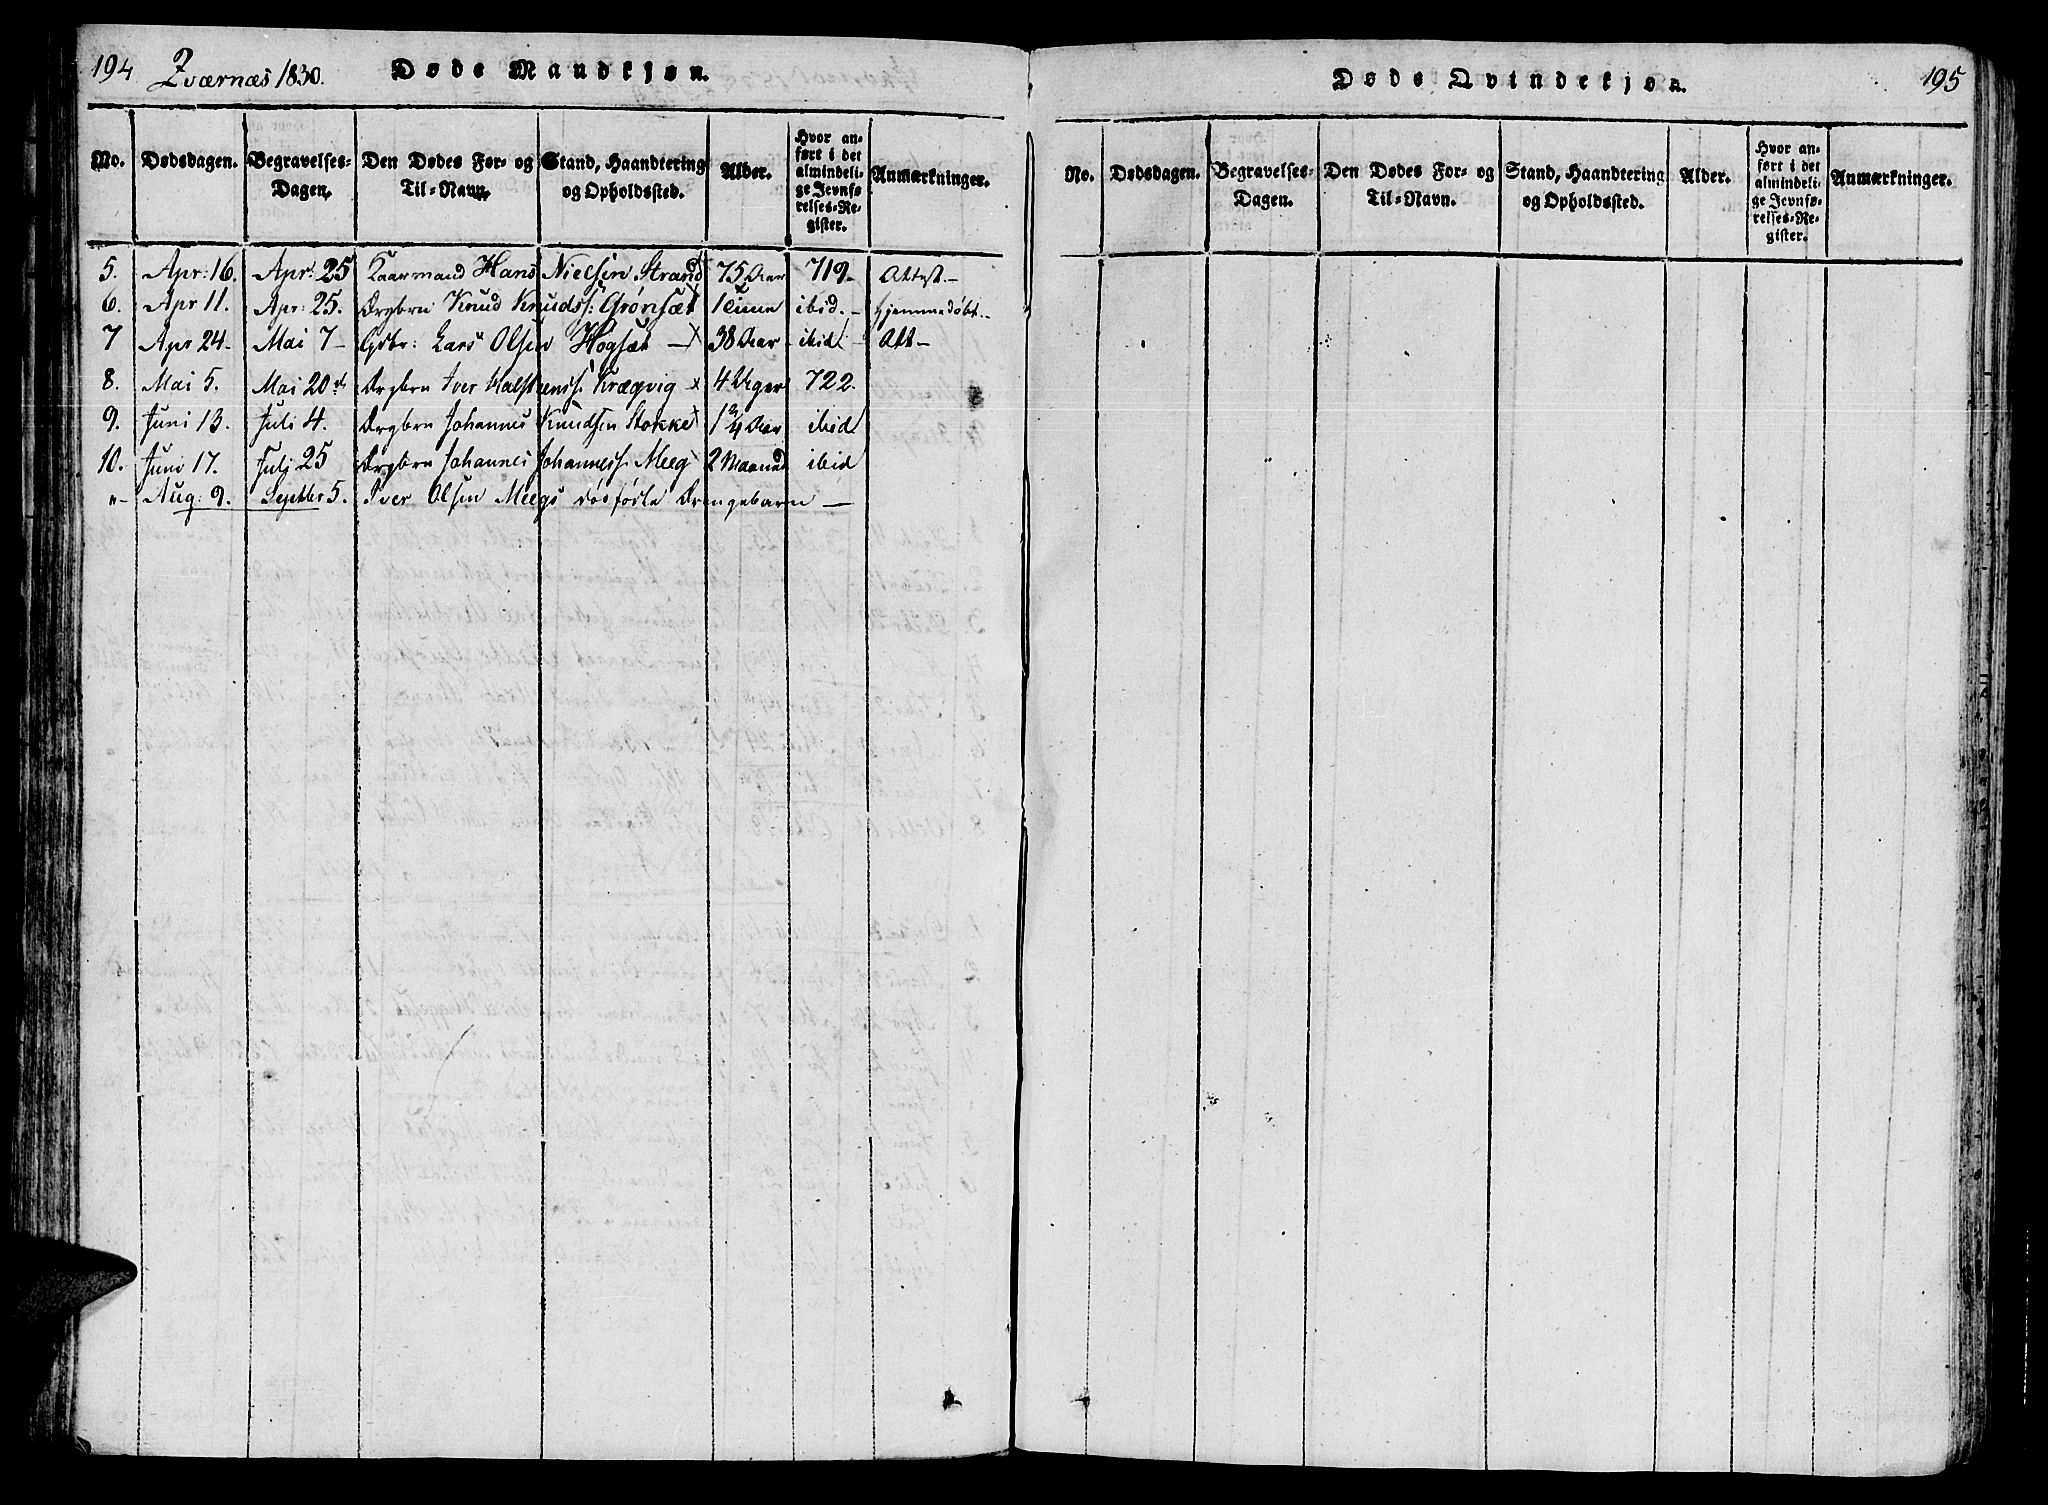 194 Qværnæs 1830. Døde Mandkjøn.
No. Dødsdagen. Begravelses-Dagen. Den Dødes For- og Til-Navn. Stand, Haandtering og Opholdssted. Alder. Hvor anført i det almindelige Jevnførelses-Register. Anmærkninger.
5. Apr: 16. Apr: 25 Kaarmand Hans Nielsen Strand 75 Aar 719. Attest.
6. Apr 11. Apr: 25. Drgbrn Knud Knuds: Grønsæt 1 Time ibid. hjemmedøbt.
7 Apr 24 Mai 7 Gdbr: Lars Olsen Høgsæt 38 Aar ibid Att
8. Mai 5. Mai 20 Drgbrn Iver Halstenss: Krægvig 4 Uger 722.
9. Juni 13. Juli 4. Drgbrn Johannes Knudsen Stokke 1 3/4 Aar ibid.
10. Juni 17. Juli 25 Drgbrn Johannes Johanness: Meeg 2 Maaned ibid
"- Aug: 9. Septbr 5. Iver Olsen Meegs dødfødte Drengebarn —
Døde Qvindekjøn. 195
No. Dødsdagen. Begravelses-Dagen. Den Dødes For- og Til-Navn. Stand, Haandtering og Opholdssted. Alder. Hvor anført i det almindelige Jevnførelses-Register. Anmærkninger.